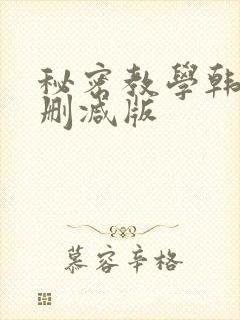 秘密教學韩
删减版
慕容辛格